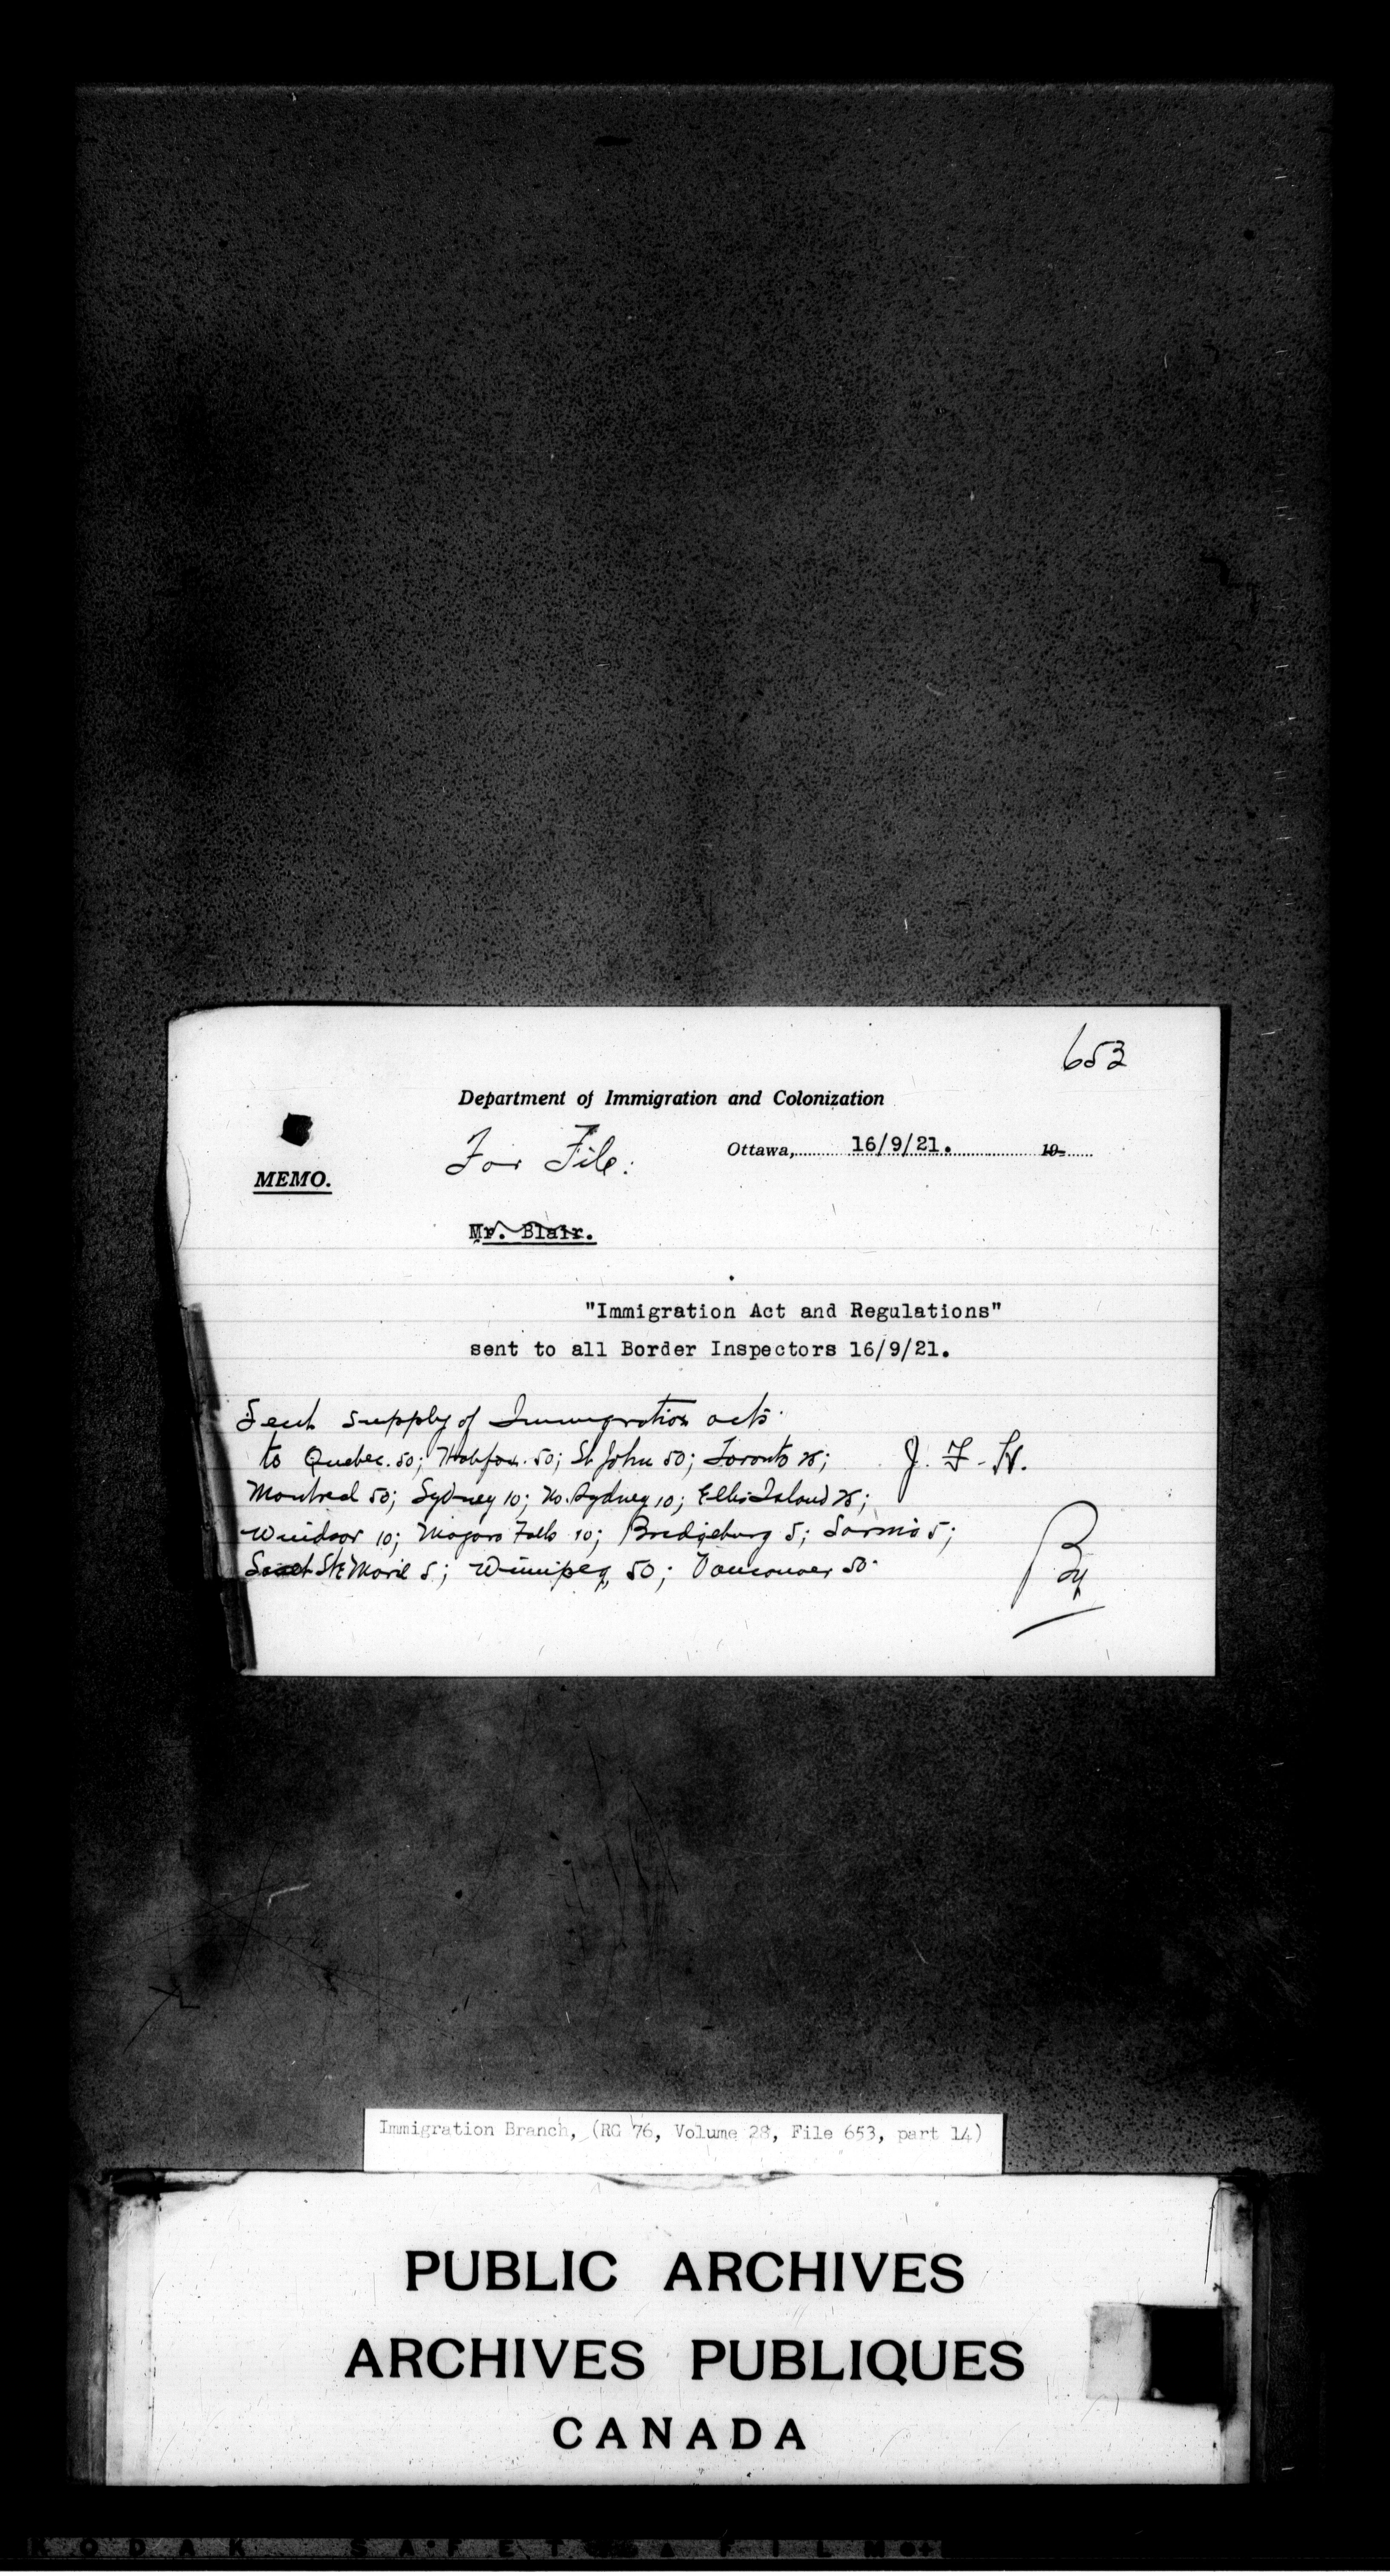 653
Department of Immigration and Colonization
For File. Ottawa, 16/9/21. 19
MEMO.
Mr. Blair.
"Immigration Act and Regulations"
sent to all Border Inspectors 16/9/21.
Sent supply of Immigration acts
to Quebec. 50; Halifax. 50; St John 50; Toronto 25; J. F. H.
Montreal 50; Sydney 10; No. Sydney 10; Ellis Island 25;
Windsor 10; Niagara Falls 10; Bridgeburg 5; Sarnia 5;
Sault Ste Marie 5; Winnipeg 50; Vancouver 50
Immigration Branch, (RG 76, Volume 28, File 653, part 14)
PUBLIC ARCHIVES
ARCHIVES PUBLIQUES
CANADA
KODAK SAFETY FILM